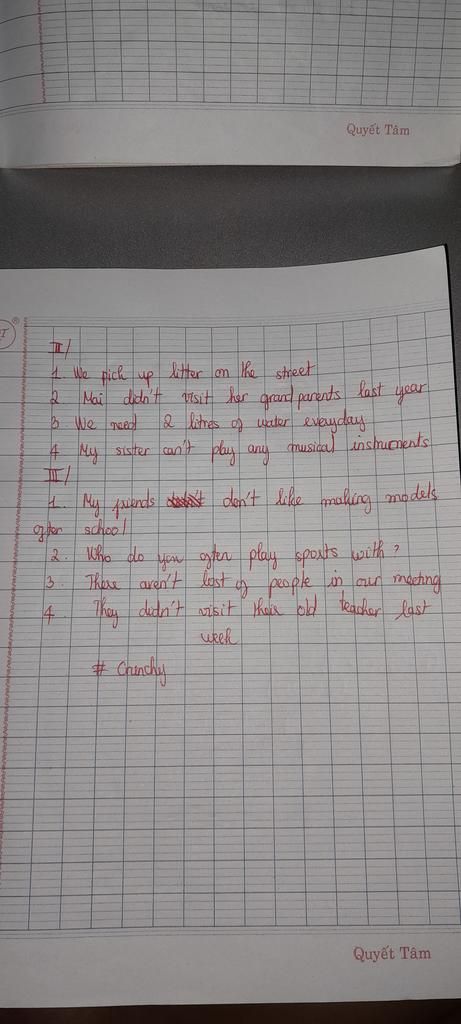 Quyết Tâm
II/
1. We pick up litter on the street
2 Mai didn't visit her grandparents last year
3. We need 2 litres of water everyday
4 My sister can't play any musical instruments
III/
1. My friends don't like making models
after school
2. Who do you often play sports with?
3. There aren't lost of people in our meeting
4. They didn't visit their old teacher last
week
# Crunchy
Quyết Tâm